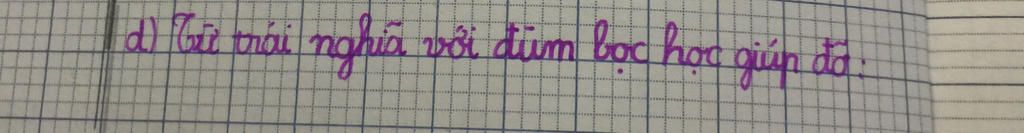 d) Từ trái nghĩa với đùm bọc học giúp đỡ: